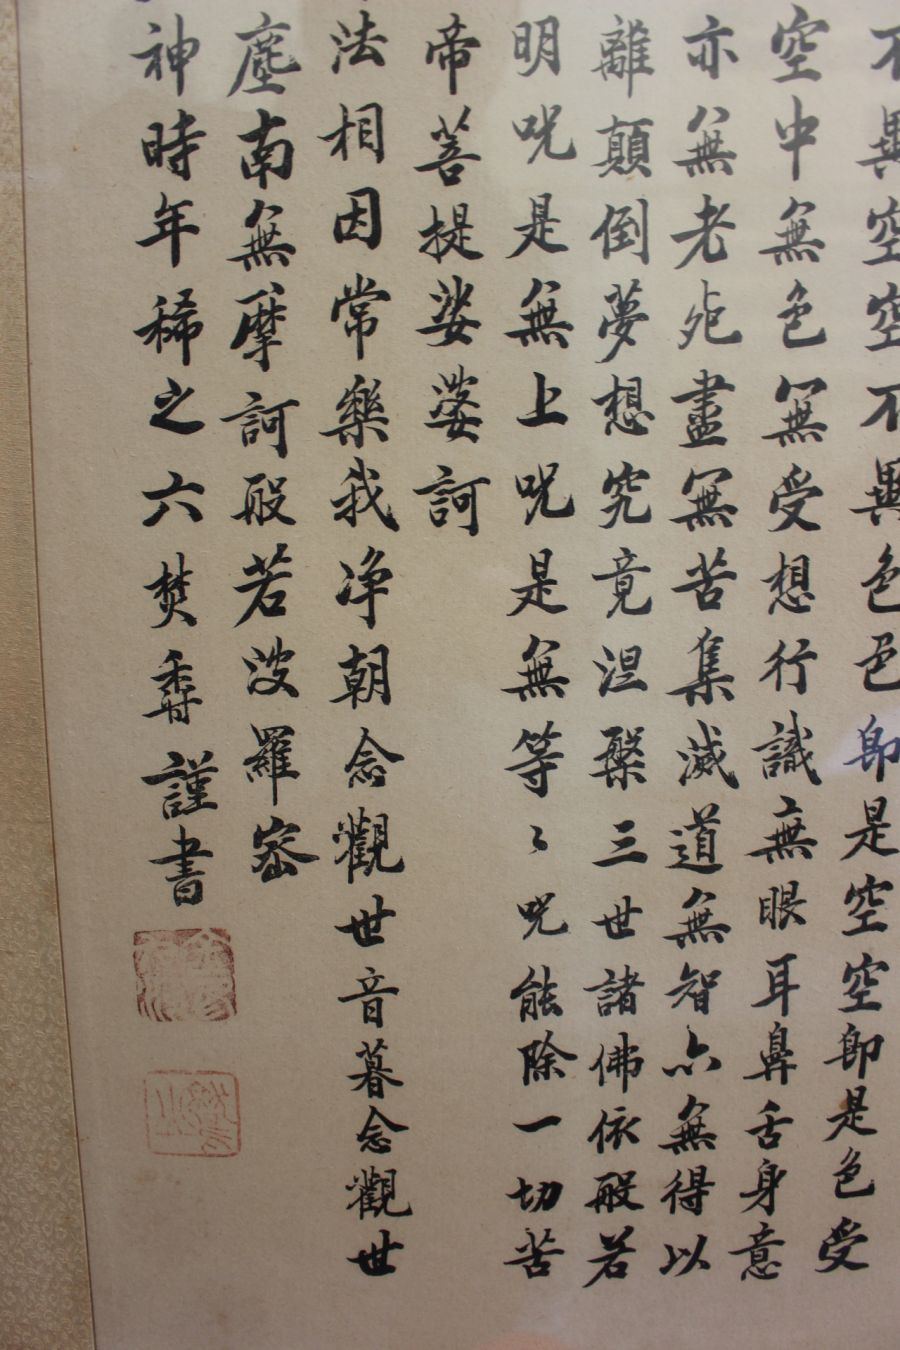 不異空空不異色色即是空空即是色受
空中無色無受想行識無眼耳鼻舌身意
亦無老死盡無苦集滅道無智亦無得以
離顛倒夢想究竟涅槃三世諸佛依般若
明咒是無上咒是無等〻咒能除一切苦
帝菩提娑婆訶
法相因常樂我淨朝念觀世音暮念觀世
塵南無摩訶般若波羅密
神時年稀之六焚香謹書